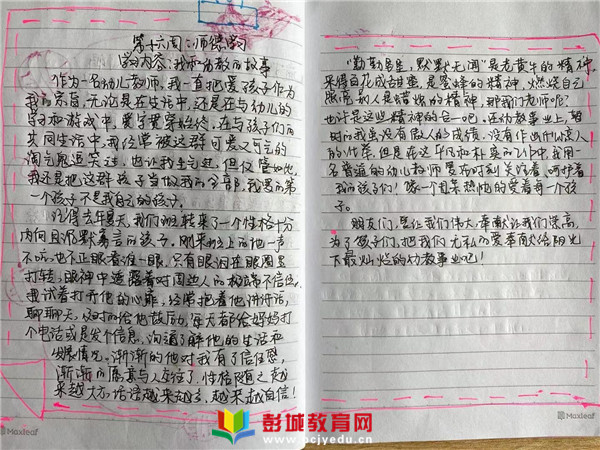 第十六周：师德学习
学习内容：我和幼教的故事
作为一名幼儿教师，我一直把爱孩子作为
我的宗旨，无论是在生活中，还是在与幼儿的
学习和游戏中，爱字贯穿始终，在与孩子们的
共同生活中，我经常被这群可爱又可气的
淘气腿逗笑过，也让我生气过，但仅管如此，
我还是把这群孩子当做我的全部，我遇的第
一个孩子不是我自己的孩子。
记得去年夏天，我们班转来了一个性格十分
内向且沉默寡言的孩子，刚来班上的他一声
不吭，也不正眼看谁一眼，只有眼泪在眼圈里
打转，眼神中透露着对周边人的极端不信任，
我试着打开他的心扉，经常抱着他讲讲话，
聊聊天，及时的给他鼓励，每天都给妈妈打
个电话或是发个信息，沟通了解他的生活和
发展情况。渐渐的他对我有了信任感，
渐渐的愿意与人交往了，性格随之越
来越大方，话语越来越多，越来越自信！
“勤勤恳恳，默默无闻”是老黄牛的精神，
采得百花成甜蜜，是蜜蜂的精神，燃烧自己
照亮别人是蜡烛的精神，那我们老师呢？
也许是这些精神的合一吧。在幼教事业上，暂
时的我虽没有傲人的成绩，没有作出什么惊人
的伟举，但是在这平凡和朴实的工作中，我用一
名普通的幼儿教师爱着时刻关注着，呵护着
我的孩子们！像一个园丁热忱的爱着每一个孩
子。
朋友们，是让我们伟大，奉献让我们崇高，
为了孩子们，把我们无私的爱奉献给阳光
下最灿烂的幼教事业吧！
Maxleaf
Maxleaf
彭城教育网
www.pcjyedu.cn